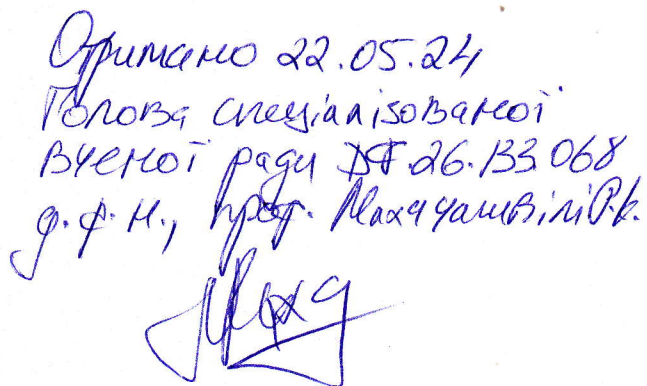 Отримано 22.05.24
Голова спеціалізованої
вченої ради ДФ 26.133.068
д.ф.н., проф. Махачашвілі Р.К.